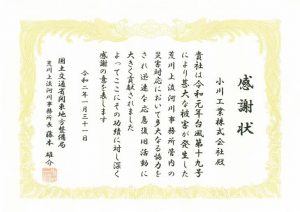 感謝状
小川工業株式会社殿
貴社は令和元年台風第十九号
により甚大な被害が発生した
荒川上流河川事務所管内の
災害対応において多大なる協力を
され迅速な応急復旧活動に
大きく貢献されました
よってここにその功績に対し深く
感謝の意を表します
令和二年一月三十一日
国土交通省関東地方整備局
荒川上流河川事務所長 藤本雄介